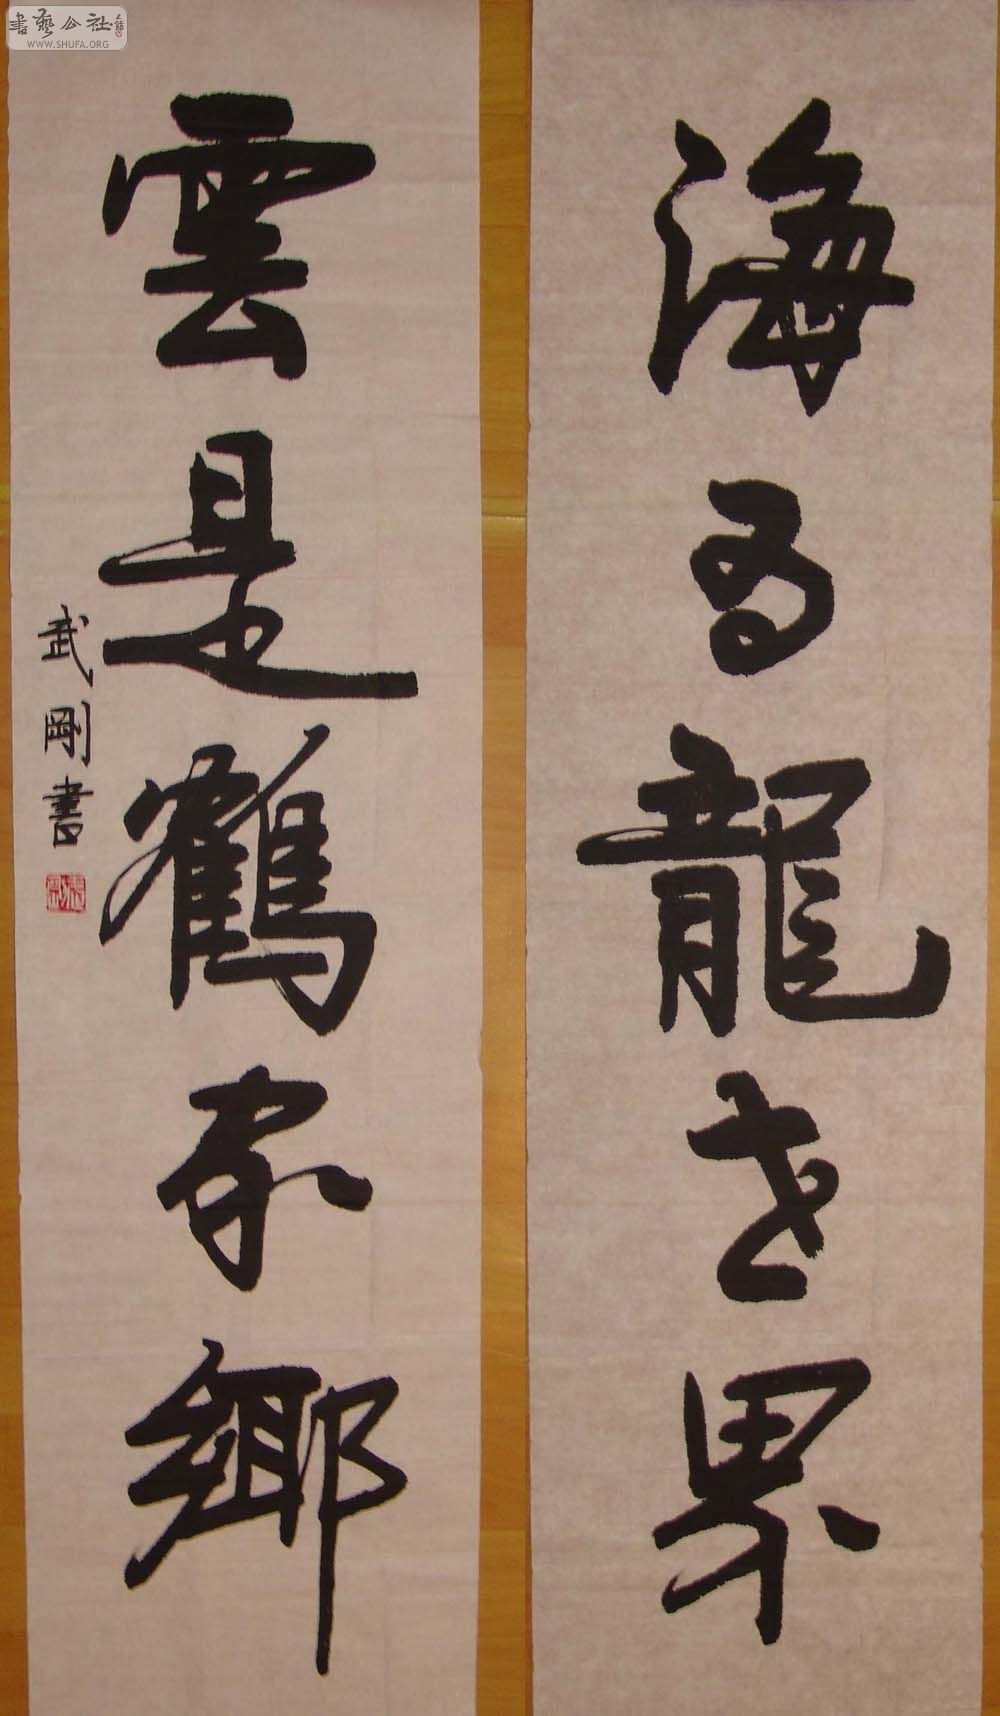 海為龍世界
雲是鶴家鄉
武剛書
書藝公社
WWW.SHUFA.ORG